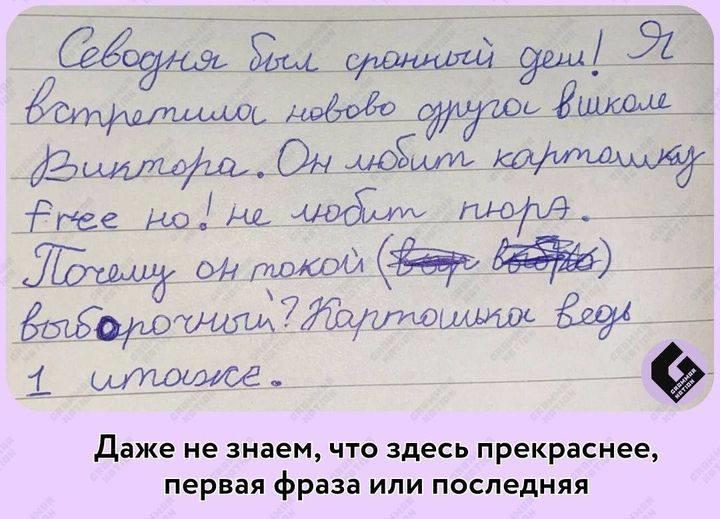 Севодня был сранный ден! Я
встретила новово друга вшколе
Виктора. Он любит картошку
free но! не любит пюрэ.
Почему он токой (
выборочный? Картошка ведь
1 итаже.
GRAMMAR NATION
Даже не знаем, что здесь прекраснее,
первая фраза или последняя